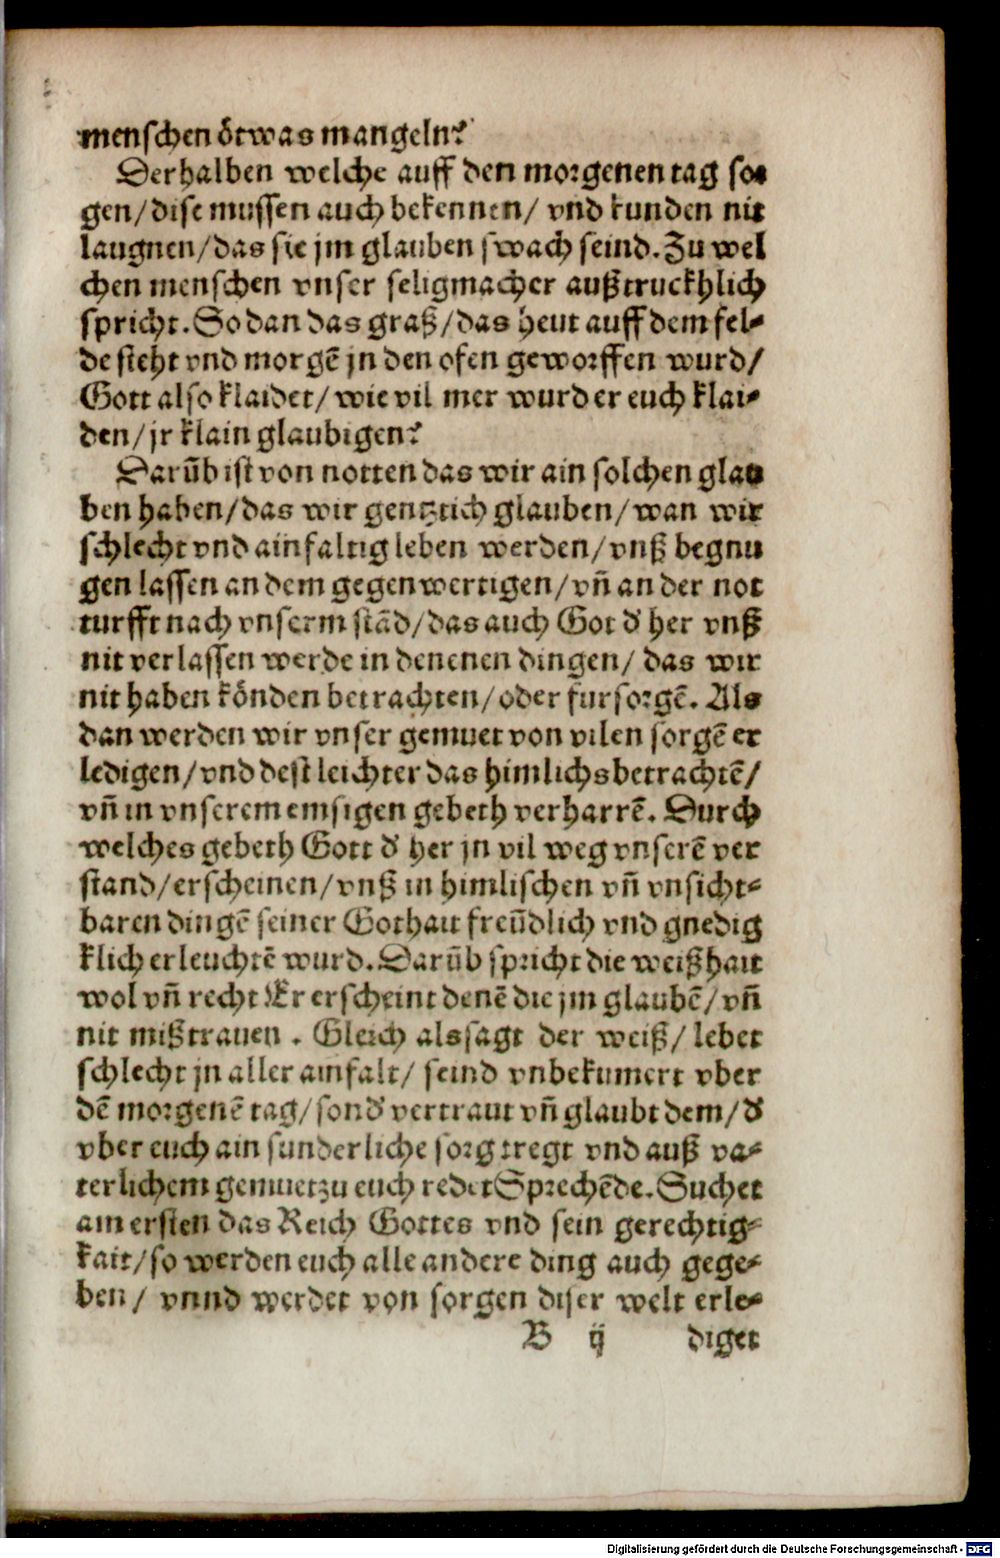 menschen ötwas mangeln?
Derhalben welche auff den morgenen tag sor
gen/dise mussen auch bekennen/ vnd kunden nit
laugnen/das sie jm glauben swach seind. Zu wel
chen menschen vnser seligmacher außtruckhlich
spricht. So dan das graß/das heut auff dem fel-
de steht vnd morgē jn den ofen geworffen wurd/
Gott also klaidet/ wie vil mer wurd er euch klai-
den/jr klain glaubigen?
Darūb ist von notten das wir ain solchen glau
ben haben/das wir gentzlich glauben/wan wir
schlecht vnd ainfaltig leben werden/vnß begnu
gen lassen an dem gegenwertigen/vn̄ an der not
turfft nach vnserm stād/das auch Got d' her vnß
nit verlassen werde in denenen dingen/ das wir
nit haben könden betrachten/oder fursorgē. Als
dan werden wir vnser gemuet von vilen sorgē er
ledigen/vnd dest leichter das himlichs betrachtē/
vn̄ in vnserem emsigen gebeth verharrē. Durch
welches gebeth Gott d' her jn vil weg vnserē ver
stand/erscheinen/vnß in himlischen vn̄ vnsicht-
baren dingē seiner Gothait freūdlich vnd gnedig
klich erleuchtē wurd. Darūb spricht die weißhait
wol vn̄ recht Er erscheint denē die jm glaubē/vn̄
nit mißtrauen . Gleich als sagt der weiß/ lebet
schlecht jn aller ainfalt/ seind vnbekumert vber
dē morgenē tag/sond' vertraut vn̄ glaubt dem/d'
vber euch ain sunderliche sorg tregt vnd auß va-
terlichem gemuet zu euch redet Sprechēde. Suchet
am ersten das Reich Gottes vnd sein gerechtig-
kait/so werden euch alle andere ding auch gege-
ben/ vnnd werdet von sorgen diser welt erle-
B ij diget
Digitalisierung gefördert durch die Deutsche Forschungsgemeinschaft - DFG